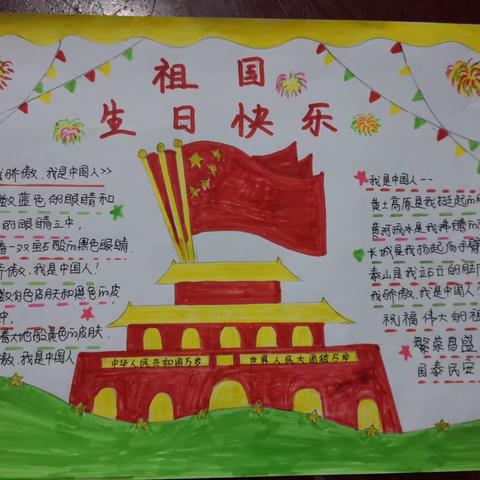 祖国
生日快乐
骄傲，我是中国人>>
数蓝色的眼睛和
的眼睛之中，
着一双宝石般的黑色眼睛．
骄傲．我是中国人！
数白色皮肤和黑色的皮
中，
着大地般黄色的皮肤．
傲．我是中国人
中华人民共和国万岁
世界人民大团结万岁
我是中国人——
黄土高原是我挺起的
黄河流水是我沸腾的
长城是我扬起的手臂
泰山是我站立的脚
我骄傲．我是中国人
祝福伟大的祖
繁荣昌盛
国泰民安